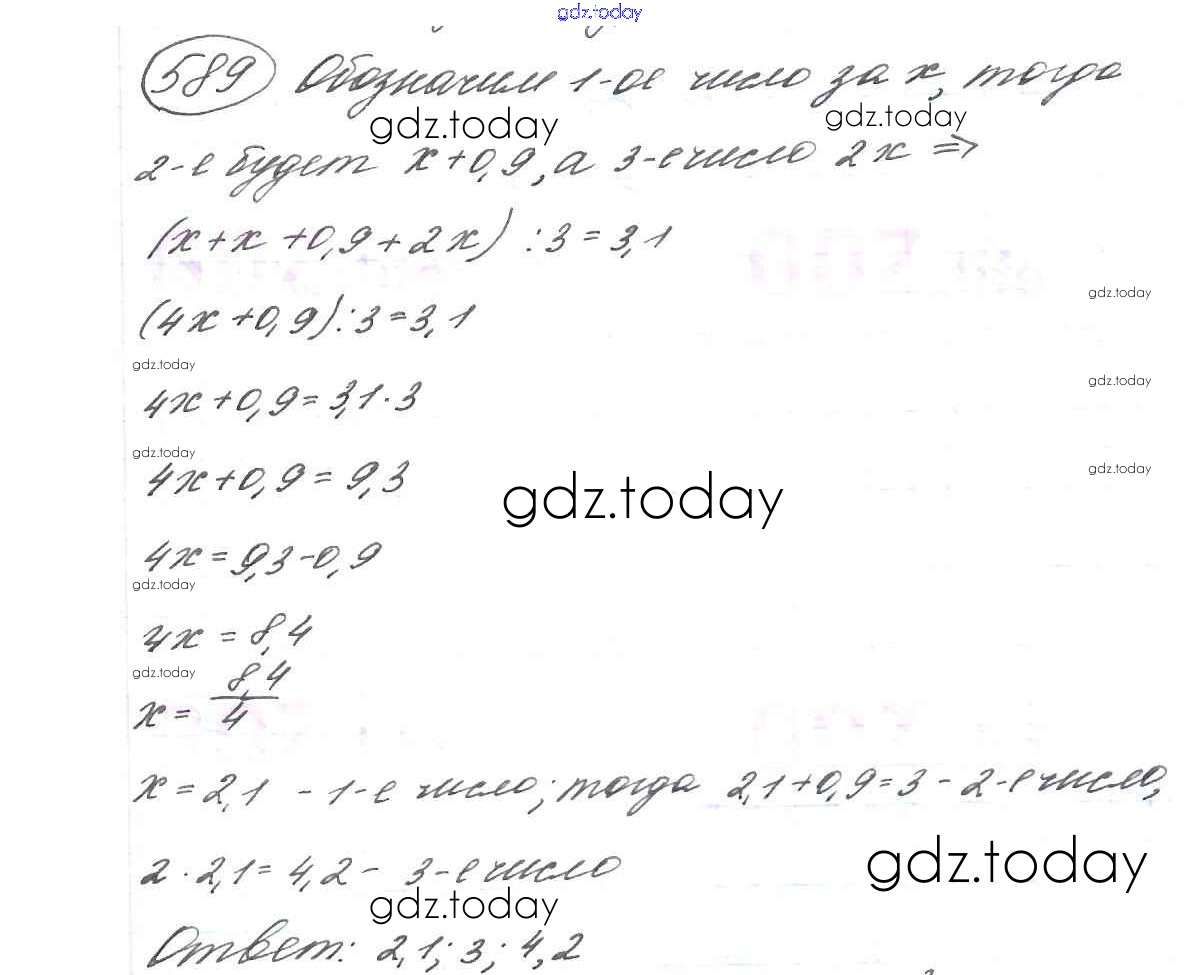 gdz.today
589 Обозначим 1-ое число за x, тогда
gdz.today gdz.today
2-е будет x+0,9, а 3-е число 2x ⇒
(x+x+0,9+2x) :3=3,1
gdz.today
(4x+0,9):3=3,1
gdz.today gdz.today
4x+0,9=3,1·3
gdz.today gdz.today
4x+0,9=9,3
gdz.today
4x=9,3-0,9
gdz.today
4x=8,4
gdz.today
x= 8,4/4
x=2,1 - 1-е число; тогда 2,1+0,9=3 - 2-е число,
gdz.today
2·2,1=4,2 - 3-е число
gdz.today
Ответ: 2,1; 3; 4,2